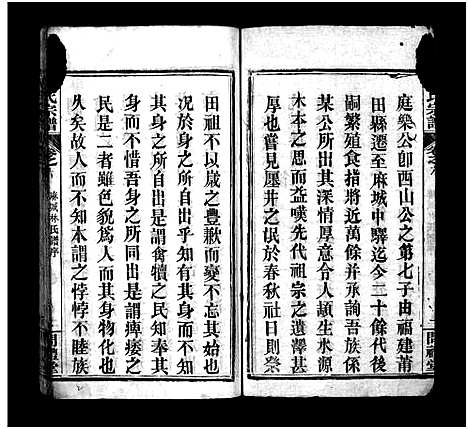 庭樂公卽西山公之第七子由福建莆
田縣遷至麻城中驛迄今二十餘代後
嗣繁殖食指將近萬餘并承詢吾族係
某公所出其深情厚意合人頓生水源
木本之思而益嘆先代祖宗之遺澤甚
厚也嘗見廛井之氓於春秋社日則祭
田祖不以歲之豐歉而變不忘其始也
況於身之所自出乎知有其身而不知
其身之所自出是謂禽犢之民知奉其
身而不惜吾身之所同出是謂痺痿之
民是二者雖色貌爲人而其身物化也
久矣故人而不知本謂之悖悖不睦族
氏宗譜
卷
麻城林氏譜序